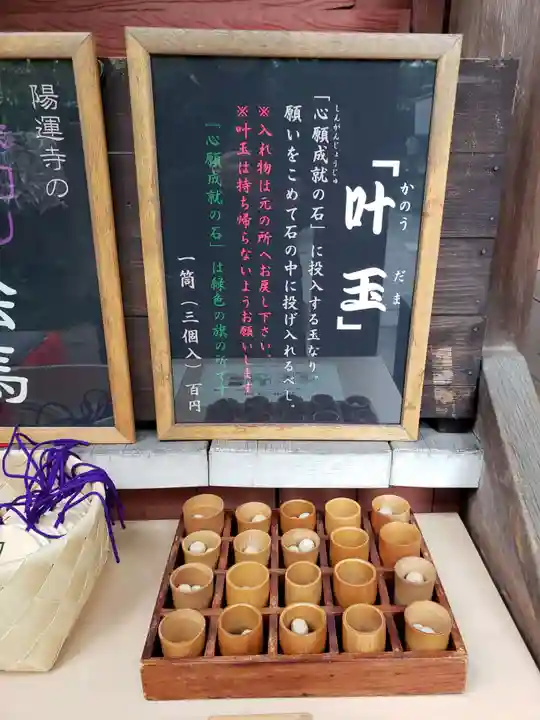 「叶玉」
かのう だま
「心願成就の石」に投入する玉なり。
しんがんじょうじゅ
願いをこめて石の中に投げ入れるべし。
※入れ物は元の所へお戻し下さい。
※叶玉は持ち帰らないようお願いします
「心願成就の石」は緑色の旗の所です
一筒(三個入)百円
陽運寺の
絵馬